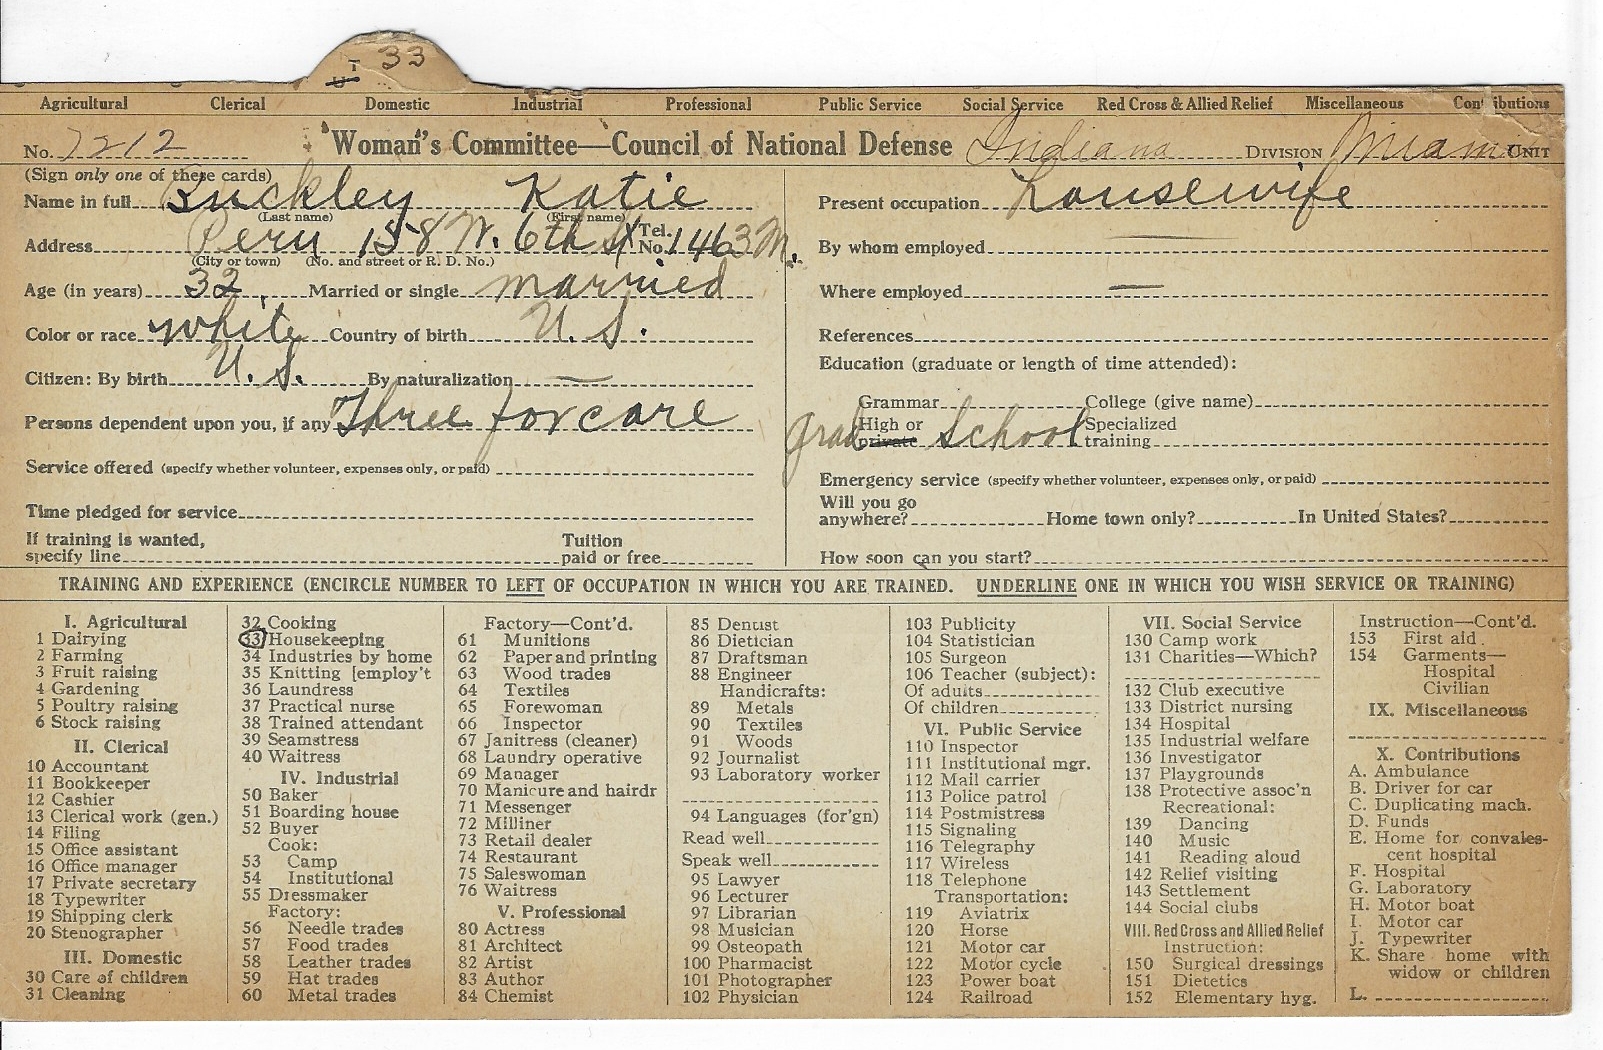 33
Agricultural Clerical Domestic Industrial Professional Public Service Social Service Red Cross & Allied Relief Miscellaneous Contributions
No. 7212 Woman's Committee—Council of National Defense Indiana DIVISION Miami UNIT
(Sign only one of these cards)
Name in full Buckley Katie
(Last name) (First name)
Address Peru 158 W. 6th St Tel. No. 1463 M.
(City or town) (No. and street or R. D. No.)
Age (in years) 32 Married or single married
Color or race white Country of birth U. S.
Citizen: By birth U. S. By naturalization —
Persons dependent upon you, if any Three for care
Service offered (specify whether volunteer, expenses only, or paid)
Time pledged for service
If training is wanted, specify line Tuition paid or free
Present occupation housewife
By whom employed —
Where employed —
References
Education (graduate or length of time attended):
Grammar College (give name)
grad High or private School Specialized training
Emergency service (specify whether volunteer, expenses only, or paid)
Will you go anywhere? Home town only? In United States?
How soon can you start?
TRAINING AND EXPERIENCE (ENCIRCLE NUMBER TO LEFT OF OCCUPATION IN WHICH YOU ARE TRAINED. UNDERLINE ONE IN WHICH YOU WISH SERVICE OR TRAINING)
I. Agricultural
1 Dairying
2 Farming
3 Fruit raising
4 Gardening
5 Poultry raising
6 Stock raising
II. Clerical
10 Accountant
11 Bookkeeper
12 Cashier
13 Clerical work (gen.)
14 Filing
15 Office assistant
16 Office manager
17 Private secretary
18 Typewriter
19 Shipping clerk
20 Stenographer
III. Domestic
30 Care of children
31 Cleaning
32 Cooking
33 Housekeeping
34 Industries by home
35 Knitting [employ't
36 Laundress
37 Practical nurse
38 Trained attendant
39 Seamstress
40 Waitress
IV. Industrial
50 Baker
51 Boarding house
52 Buyer
Cook:
53 Camp
54 Institutional
55 Dressmaker
Factory:
56 Needle trades
57 Food trades
58 Leather trades
59 Hat trades
60 Metal trades
Factory—Cont'd.
61 Munitions
62 Paper and printing
63 Wood trades
64 Textiles
65 Forewoman
66 Inspector
67 Janitress (cleaner)
68 Laundry operative
69 Manager
70 Manicure and hairdr
71 Messenger
72 Milliner
73 Retail dealer
74 Restaurant
75 Saleswoman
76 Waitress
V. Professional
80 Actress
81 Architect
82 Artist
83 Author
84 Chemist
85 Dentist
86 Dietician
87 Draftsman
88 Engineer
Handicrafts:
89 Metals
90 Textiles
91 Woods
92 Journalist
93 Laboratory worker
94 Languages (for'gn)
Read well
Speak well
95 Lawyer
96 Lecturer
97 Librarian
98 Musician
99 Osteopath
100 Pharmacist
101 Photographer
102 Physician
103 Publicity
104 Statistician
105 Surgeon
106 Teacher (subject):
Of adults
Of children
VI. Public Service
110 Inspector
111 Institutional mgr.
112 Mail carrier
113 Police patrol
114 Postmistress
115 Signaling
116 Telegraphy
117 Wireless
118 Telephone
Transportation:
119 Aviatrix
120 Horse
121 Motor car
122 Motor cycle
123 Power boat
124 Railroad
VII. Social Service
130 Camp work
131 Charities—Which?
132 Club executive
133 District nursing
134 Hospital
135 Industrial welfare
136 Investigator
137 Playgrounds
138 Protective assoc'n
Recreational:
139 Dancing
140 Music
141 Reading aloud
142 Relief visiting
143 Settlement
144 Social clubs
VIII. Red Cross and Allied Relief
Instruction:
150 Surgical dressings
151 Dietetics
152 Elementary hyg.
Instruction—Cont'd.
153 First aid
154 Garments—
Hospital
Civilian
IX. Miscellaneous
X. Contributions
A. Ambulance
B. Driver for car
C. Duplicating mach.
D. Funds
E. Home for convales-
cent hospital
F. Hospital
G. Laboratory
H. Motor boat
I. Motor car
J. Typewriter
K. Share home with
widow or children
L.